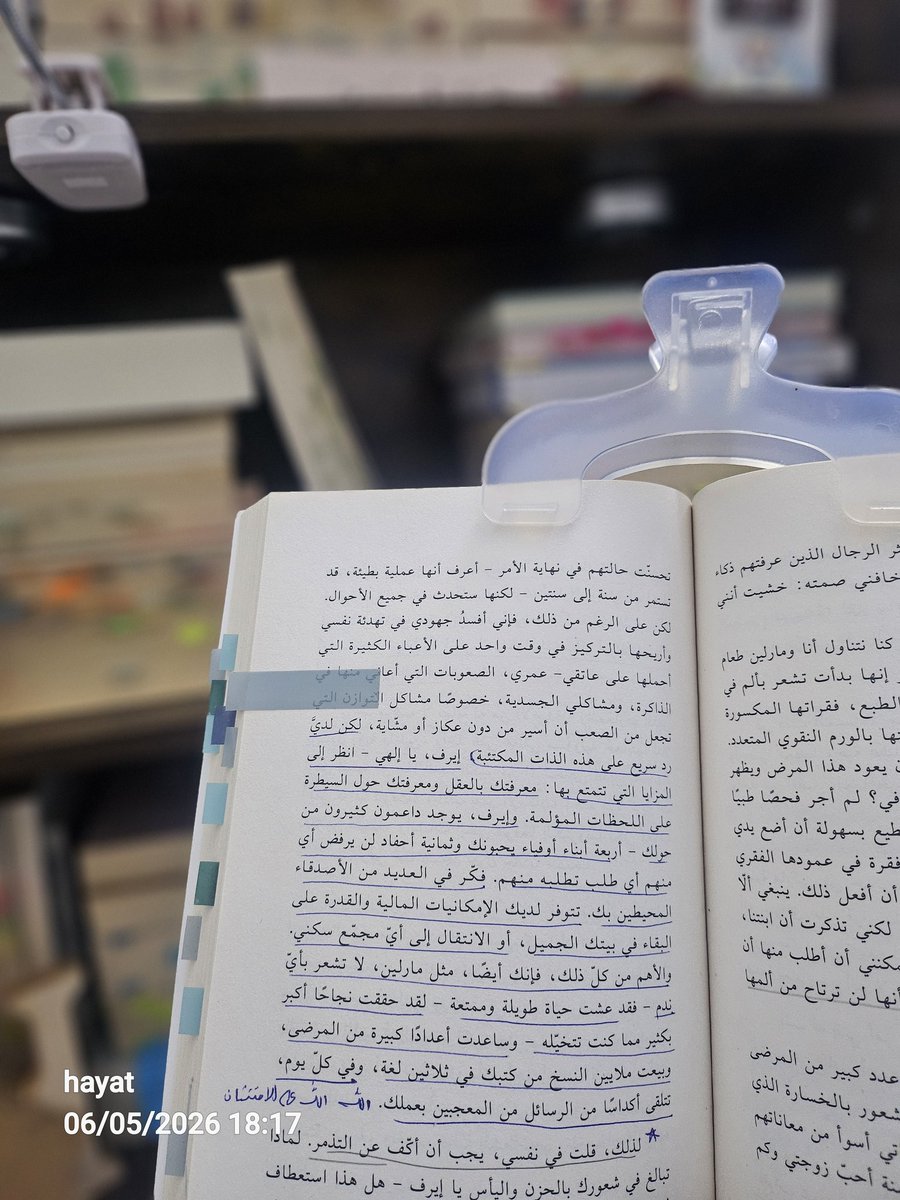 تحسنّت حالتهم في نهاية الأمر – أعرف أنها عملية بطيئة، قد
تستمر من سنة إلى سنتين – لكنها ستحدث في جميع الأحوال.
لكن على الرغم من ذلك، فإني أفسدُ جهودي في تهدئة نفسي
وأريحها بالتركيز في وقت واحد على الأعباء الكثيرة التي
أحملها على عاتقي- عمري، الصعوبات التي أعاني منها في
الذاكرة، ومشاكلي الجسدية، خصوصًا مشاكل التوازن التي
تجعل من الصعب أن أسير من دون عكاز أو مشّاية، لكن لديَّ
رد سريع على هذه الذات المكتئبة) إيرف، يا إلهي – انظر إلى
المزايا التي تتمتع بها: معرفتك بالعقل ومعرفتك حول السيطرة
على اللحظات المؤلمة. وإيرف، يوجد داعمون كثيرون من
حولك – أربعة أبناء أوفياء يحبونك وثمانية أحفاد لن يرفض أي
منهم أي طلب تطلبه منهم. فكّر في العديد من الأصدقاء
المحيطين بك. تتوفر لديك الإمكانيات المالية والقدرة على
البقاء في بيتك الجميل، أو الانتقال إلى أيّ مجمّع سكني.
والأهم من كلّ ذلك، فإنك أيضًا، مثل مارلين، لا تشعر بأيّ
ندم – فقد عشت حياة طويلة وممتعة – لقد حققت نجاحًا أكبر
بكثير مما كنت تتخيّله – وساعدت أعدادًا كبيرة من المرضى،
وبيعت ملايين النسخ من كتبك في ثلاثين لغة، وفي كلّ يوم،
تتلقى أكداسًا من الرسائل من المعجبين بعملك.
لذلك، قلت في نفسي، يجب أن أكف عن التذمر. لماذا
تبالغ في شعورك بالحزن واليأس يا إيرف – هل هذا استعطاف
الرجال الذين عرفتهم ذكاء
خافني صمته: خشيت أنني
كنا نتناول أنا ومارلين طعام
إنها بدأت تشعر بألم في
الطبع، فقراتها المكسورة
بالورم النقوي المتعدد.
يعود هذا المرض ويظهر
في؟ لم أجر فحصًا طبيًا
بسهولة أن أضع يدي
فقرة في عمودها الفقري
أن أفعل ذلك. ينبغي ألّا
لكني تذكرت أن ابنتنا،
يمكنني أن أطلب منها أن
أنها لن ترتاح من ألمها
عدد كبير من المرضى
بالخسارة الذي
أسوأ من معاناتهم
أحبّ زوجتي وكم
hayat
06/05/2026 18:17